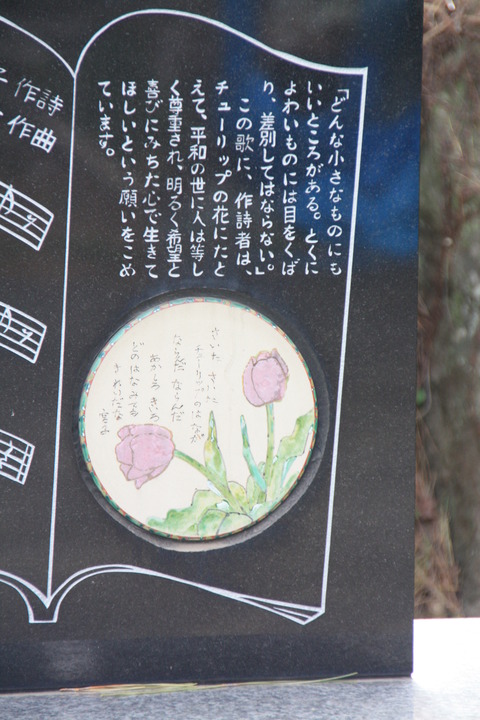 「どんな小さなものにも
いいところがある。とくに
よわいものには目をくば
り、差別してはならない。」
この歌に、作詩者は、
チューリップの花にたと
えて、平和の世に人は等し
く尊重され、明るく希望と
喜びにみちた心で生きて
ほしいという願いをこめ
ています。
さいた さいた
チューリップのはなが
ならんだ ならんだ
あかしろきいろ
どのはなみても
きれいだな
宮子
作詩
作曲